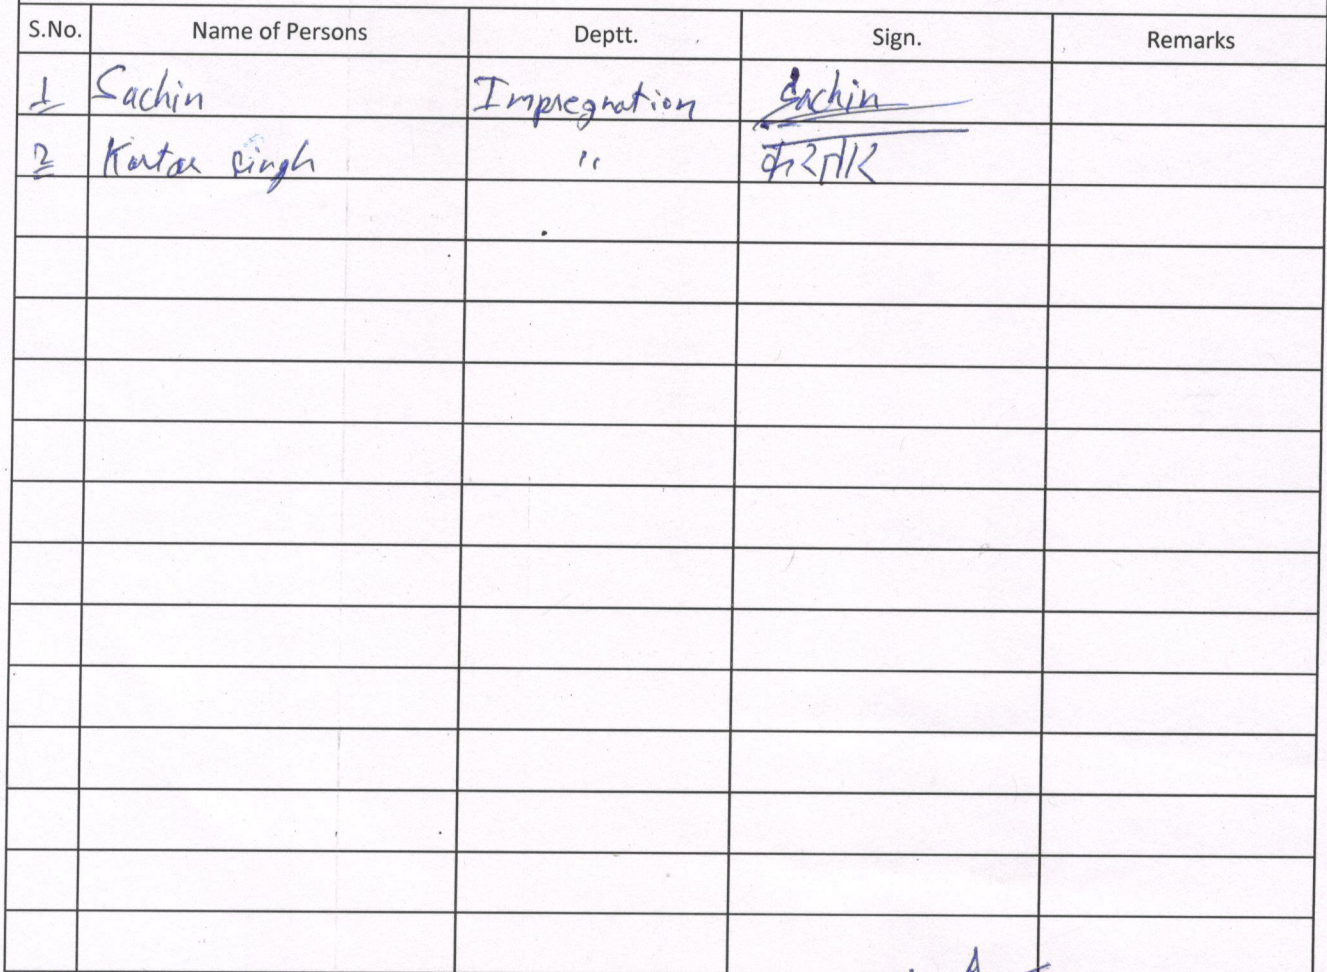 S.No. Name of Persons Deptt. Sign. Remarks
1 Sachin Impregnation Sachin
2 Kartar Singh " करतार